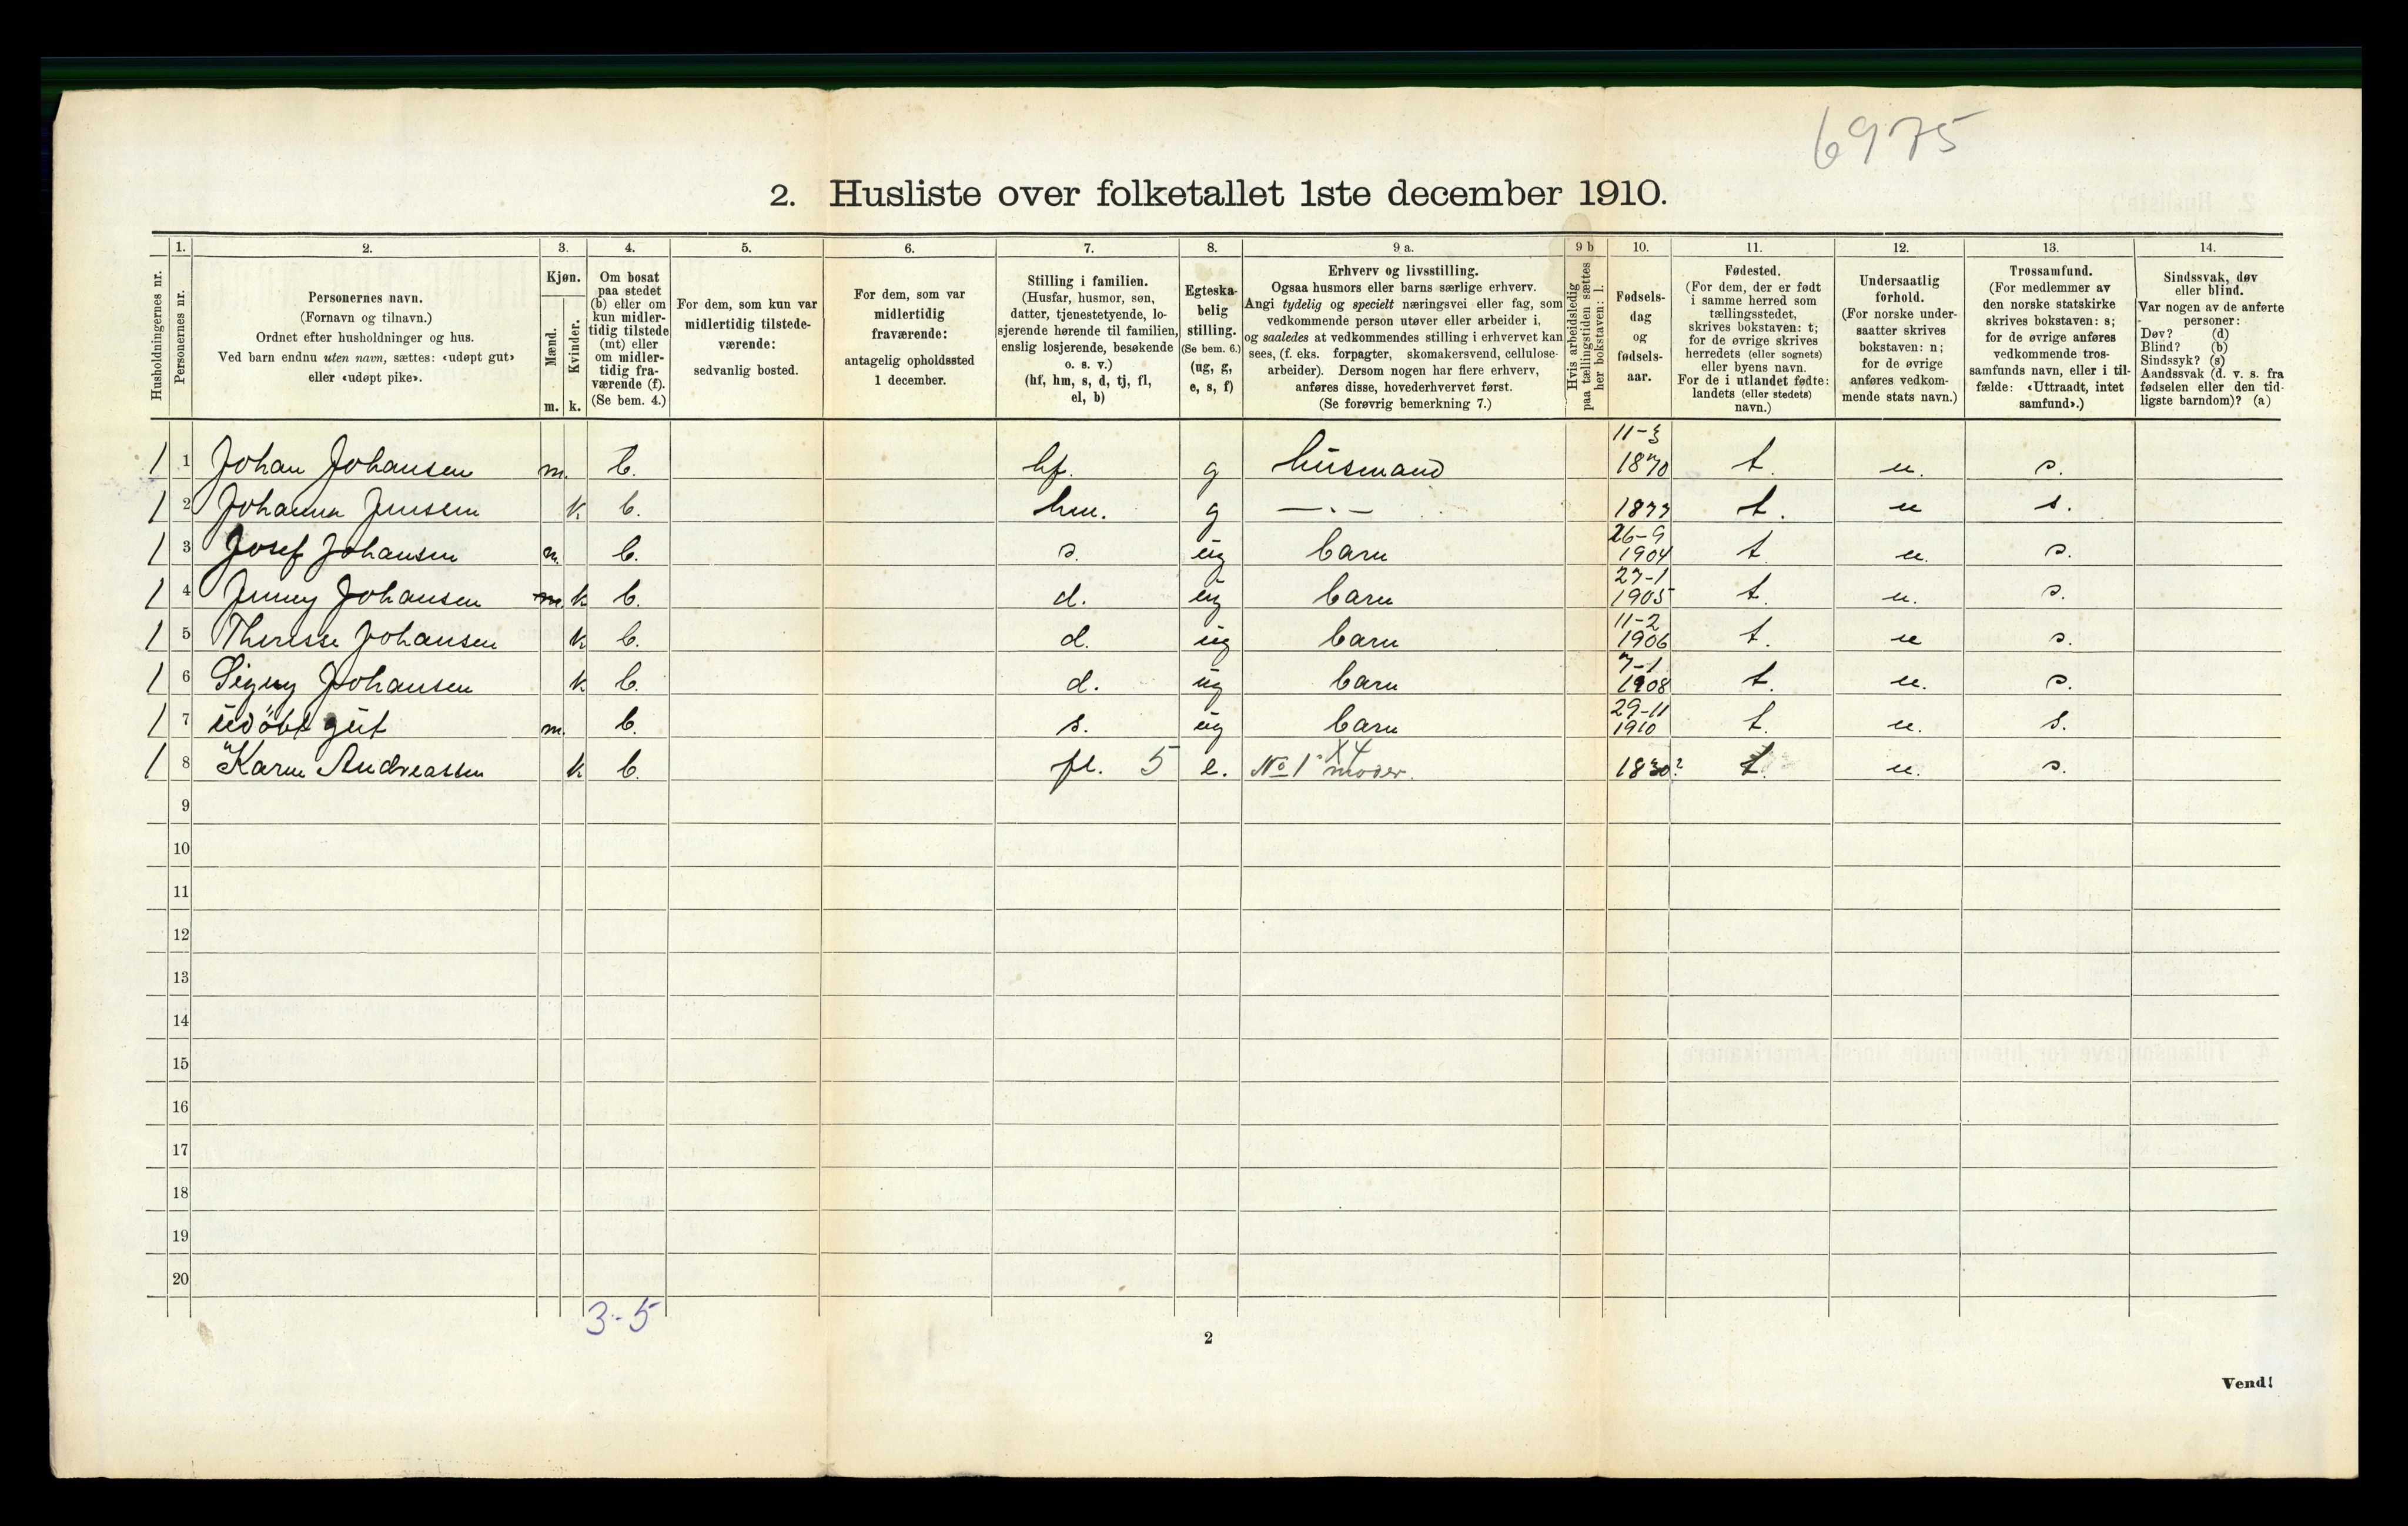 6975
2. Husliste over folketallet 1ste december 1910.
Husholdningernes nr.
1. Personernes nr.
2. Personernes navn.
(Fornavn og tilnavn.)
Ordnet efter husholdninger og hus.
Ved barn endnu uten navn, sættes: «udøpt gut»
eller «udøpt pike».
3. Kjøn.
Mænd. m.
Kvinder. k.
4. Om bosat
paa stedet
(b) eller om
kun midler-
tidig tilstede
(mt) eller
om midler-
tidig fra-
værende (f).
(Se bem. 4.)
5. For dem, som kun var
midlertidig tilstede-
værende:
sedvanlig bosted.
6. For dem, som var
midlertidig
fraværende:
antagelig opholdssted
1 december.
7. Stilling i familien.
(Husfar, husmor, søn,
datter, tjenestetyende, lo-
sjerende hørende til familien,
enslig losjerende, besøkende
o. s. v.)
(hf, hm, s, d, tj, fl,
el, b)
8. Egteska-
belig
stilling.
(Se bem. 6.)
(ug, g,
e, s, f)
9 a. Erhverv og livsstilling.
Ogsaa husmors eller barns særlige erhverv.
Angi tydelig og specielt næringsvei eller fag, som
vedkommende person utøver eller arbeider i,
og saaledes at vedkommendes stilling i erhvervet kan
sees, (f. eks. forpagter, skomakersvend, cellulose-
arbeider). Dersom nogen har flere erhverv,
anføres disse, hovederhvervet først.
(Se forøvrig bemerkning 7.)
9 b Hvis arbeidsledig
paa tællingstiden sættes
her bokstaven: l.
10. Fødsels-
dag
og
fødsels-
aar.
11. Fødested.
(For dem, der er født
i samme herred som
tællingsstedet,
skrives bokstaven: t;
for de øvrige skrives
herredets (eller sognets)
eller byens navn.
For de i utlandet fødte:
landets (eller stedets)
navn.)
12. Undersaatlig
forhold.
(For norske under-
saatter skrives
bokstaven: n;
for de øvrige
anføres vedkom-
mende stats navn.)
13. Trossamfund.
(For medlemmer av
den norske statskirke
skrives bokstaven: s;
for de øvrige anføres
vedkommende tros-
samfunds navn, eller i til-
fælde: «Uttraadt, intet
samfund».)
14. Sindssvak, døv
eller blind.
Var nogen av de anførte
personer:
Døv? (d)
Blind? (b)
Sindssyk? (s)
Aandssvak (d. v. s. fra
fødselen eller den tid-
ligste barndom)? (a)
1 1 Johan Johansen m. b. hf. g husmand 11-3 1870 t. n. s.
1 2 Johanna Jensen k b. hm. g —.— 1877 t. n s.
1 3 Josef Johansen m. b. s. ug barn 26-9 1904 t n. s.
1 4 Jenny Johansen m. k b. d. ug barn 27-1 1905 t. n. s.
1 5 Therese Johansen k b. d. ug barn 11-2 1906 t. n s.
1 6 Signy Johansen k b. d. ug barn 7-1 1908 t. n. s.
1 7 udöbt gut m. b. s. ug barn 29-11 1910 t. n. s.
1 8 Karen Andreassen k b. fl. 5 e. No 1 X4 moder. 1830? t. n. s.
9
10
11
12
13
14
15
16
17
18
19
20
3-5
2
Vend!